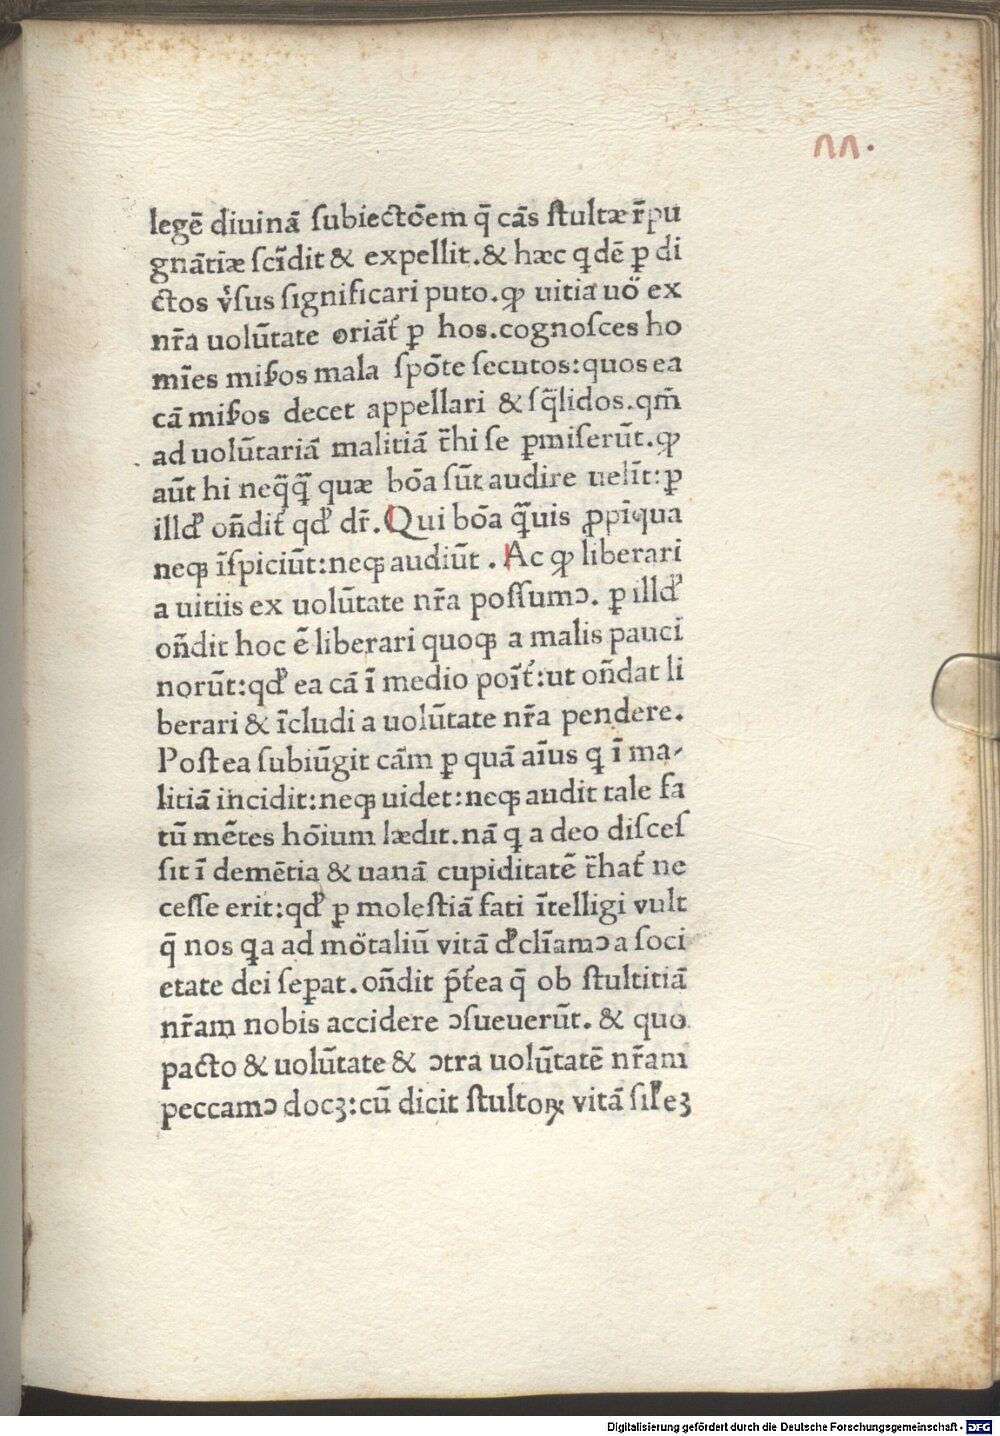 ՈՈ.
legē diuinā ſubiectōem q̄ cās ſtultæ r̄pu
gnātiæ ſcīdit & expellit.& hæc qdē ꝑ di
ctos v̓ſus ſignificari puto.ꝙ uitia uö ex
nr̄a uolūtate oriāt̓ ꝑ hos.cognoſces ho
mīes miẜos mala ſpōte ſecutos:quos ea
cā miẜos decet appellari & ſq̄lidos.qm̄
ad uolūtariā malitiā t̄hi ſe ꝑmiſerūt.ꝙ
aūt hi neq̄q̄ quæ bōa ſūt audire uelīt:ꝑ
illd̓ on̄dit̓ qd̓ dr̄.Qui bōa q̄uis ꝓpīqua
neqꝫ īſpiciūt:neqꝫ audiūt . Ac ꝙ liberari
a uitiis ex uolūtate nr̄a poſſumꝰ. ꝑ illd̓
on̄dit hoc ē liberari quoqꝫ a malis pauci
norūt:qd̓ ea cā ī medio poīt̓:ut on̄dat li
berari & īcludi a uolūtate nr̄a pendere.
Poſtea ſubiūgit cām ꝑ quā aīus q ī ma-
litiā incidit:neqꝫ uidet:neqꝫ audit tale fa
tū mētes hōium lædit.nā q a deo diſceſ
ſit ī demētia & uanā cupiditatē t̄hat̓ ne
ceſſe erit:qd̓ ꝑ moleſtiā fati ītelligi vult
q̄ nos qa ad mötaliū vitā d̓clīamꝰ a ſoci
etate dei ſeꝑat.on̄dit p̄t̓ea q̄ ob ſtultitiā
nr̄am nobis accidere ꝯſueuerūt. & quo
pacto & uolūtate & ꝯtra uolūtatē nr̄am
peccamꝰ docꝫ:cū dicit ſtultoꝝ vitā ſil̓eꝫ
Digitalisierung gefördert durch die Deutsche Forschungsgemeinschaft - DFG